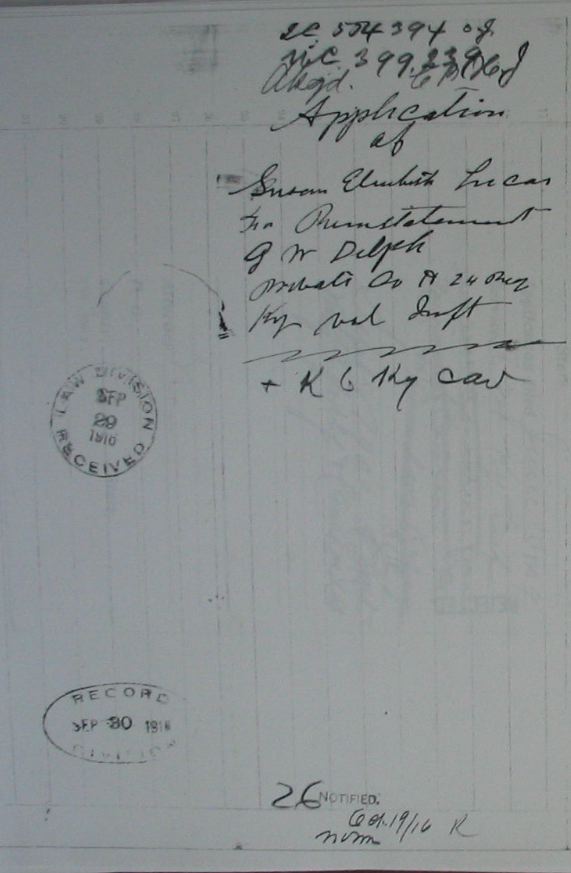 Application
of
Susan Elizabeth Lucas
For Reinstatement
G W Delph
Private Co A 24 Reg
Ky vol Inft
+ K 6 Ky Cav
LAW DIVISION
SEP
29
1916
RECEIVED
RECORD
SEP 30 1916
DIVISION
26 NOTIFIED.
Oct. 19/16